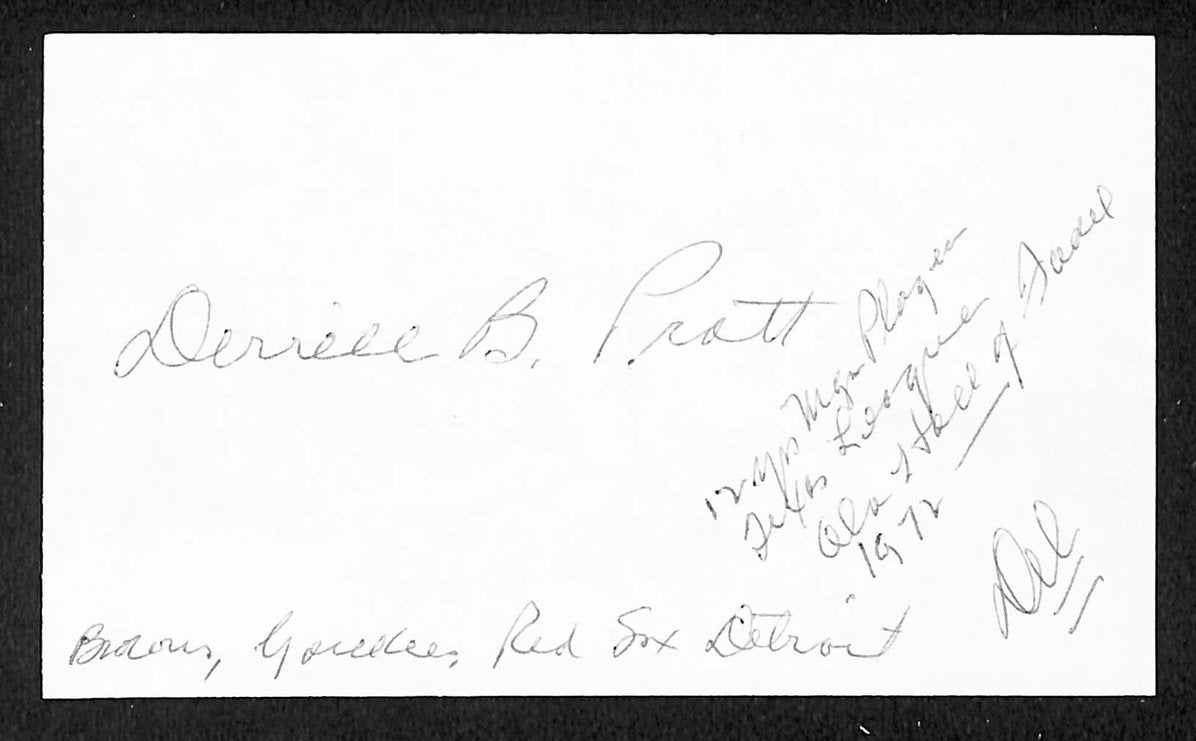 Derrill B. Pratt
12 yrs Mgr Player
Texas League
Ala Hall of
1972
Del
Browns, Yankees, Red Sox Detroit